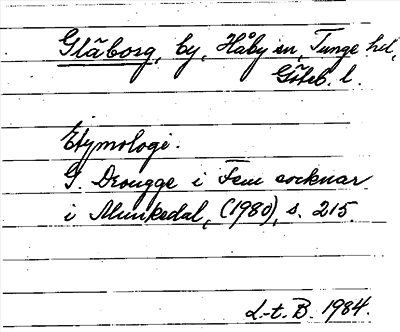 Glãborg, by, Håby sn, Tunge hd,
Göteb. l.
Etymologi.
G. Drougge i Fem socknar
i Munkedal, (1980), s. 215.
L-t. B. 1984.